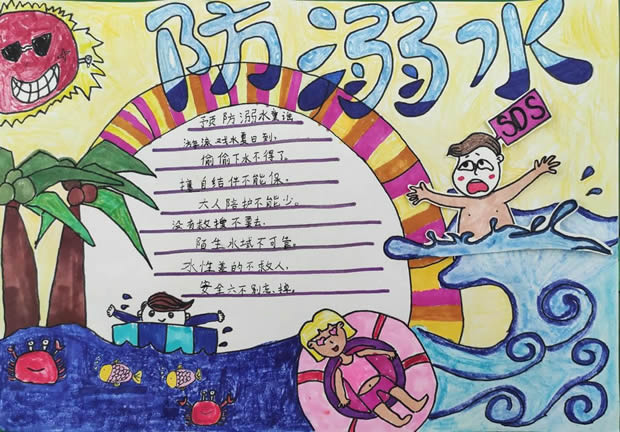 防溺水
预防溺水童谣
游泳戏水夏日到,
偷偷下水不得了。
擅自结伴不能保,
六人陪护不能少。
没有救援不要去,
陌生水域不可
水性差的不救人,
安全六不别
SDS